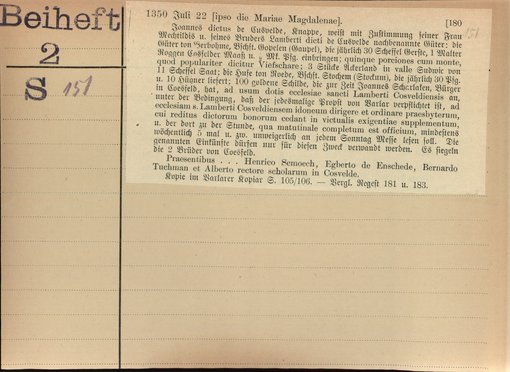 Beiheft
2
S 151
1350 Juli 22 [ipso die Mariae Magdalenae]. [180
151
Joannes dictus de Cusvelde, Knappe, weist mit Zustimmung seiner Frau
Mechtildis u. seines Bruders Lamberti dicti de Cusvelde nachbenannte Güter; die
Güter ton Berbohne, Bschft. Gopelen (Gaupel), die jährlich 30 Scheffel Gerste, 1 Malter
Roggen Cosfelder Maaß u. Mk. Pfg. einbringen; quinque porciones cum monte,
quod populariter dicitur Viefschare; 3 Stücke Ackerland in valle Sudwic von
11 Scheffel Saat; die Hufe ton Roede, Bschft. Stochem (Stockum), die jährlich 30 Pfg.
u. 10 Hühner liefert; 100 goldene Schilde, die zur Zeit Joannes Scharlaken, Bürger
in Coesfeld, hat, ad usum dotis ecclesiae sancti Lamberti Cosveldiensis an,
unter der Bedingung, daß der jedesmalige Propst von Varlar verpflichtet ist, ad
ecclesiam s. Lamberti Cosveldiensem idoneum dirigere et ordinare praesbyterum,
cui reditus dictorum bonorum cedant in victualis exigentiae supplementum,
u. der dort zu der Stunde, qua matutinale completum est officium, mindestens
wöchentlich 5 mal u. zw. unweigerlich an jedem Sonntag Messe lesen soll. Die
genannten Einkünfte dürfen nur für diesen Zweck verwandt werden. Es siegeln
die 2 Brüder von Coesfeld.
Praesentibus . . . Henrico Semoech, Egberto de Enschede, Bernardo
Tuchman et Alberto rectore scholarum in Cosvelde.
Kopie im Varlarer Kopiar S. 105/106. — Vergl. Regest 181 u. 183.